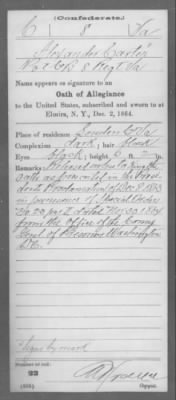 (Confederate.)
C 8 Va
Alexander Carter
Pvt Co B 8 Regt Va
Name appears as signature to an
Oath of Allegiance
to the United States, subscribed and sworn to at
Elmira, N. Y., Dec. 2, 1864.
Place of residence Loudon Co Va
Complexion dark ; hair black
Eyes black ; height 6 ft. in.
Remarks: Released
oath as prescribed in the Presi-
dents Proclamation of Dec 8 1863
in pursuance of Special Orders
dated Nov 30 1864
from the Office of the Comy
Genl of Prisoners Washington
D.C.
Signs by mark
Number of roll:
22
(639)
Copyist.